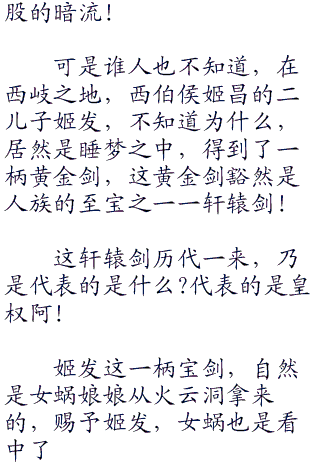 股的暗流！
可是谁人也不知道，在
西岐之地，西伯侯姬昌的二
儿子姬发，不知道为什么，
居然是睡梦之中，得到了一
柄黄金剑，这黄金剑豁然是
人族的至宝之一一轩辕剑！
这轩辕剑历代一来，乃
是代表的是什么?代表的是皇
权阿！
姬发这一柄宝剑，自然
是女蜗娘娘从火云洞拿来
的，赐予姬发，女蜗也是看
中了